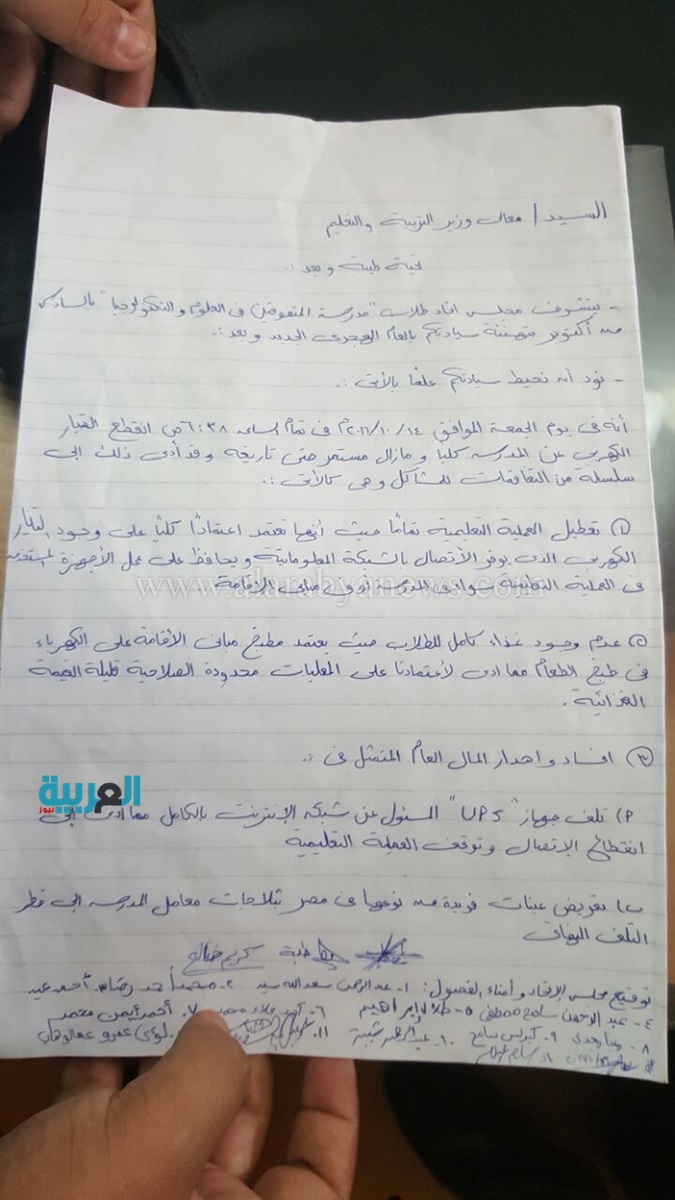 السيد / معالى وزير التربية والتعليم
تحية طيبة وبعد :.
- يتشرف مجلس اتحاد طلاب "مدرسة المتفوقين فى العلوم والتكنولوجيا" بالسادس
من أكتوبر بتهنئة سيادتكم بالعام الهجرى الجديد وبعد :.
- نود أن نحيط سيادتكم علمًا بالأتى :.
أنه فى يوم الجمعة الموافق ٢٠١٦/١٠/١٤م فى تمام الساعه ٦:٣٨ص انقطع التيار
الكهربى عن المدرسه كليا ومازال مستمر حتى تاريخه وقد أدى ذلك الى
سلسلة من التفاقمات للمشاكل وهى كالأتى :.
① تعطيل العملية التعليمية تمامًا حيث أنها تعتمد اعتمادًا كليًا على وجود التيار
الكهربى الذى يوفر الأتصال بالشبكة المعلوماتية ويحافظ على عمل الأجهزة المستخدمه
فى العملية التعليمية سواء فى المدرسة أو فى مبانى الإقامة.
www.alarabyanews.com
② عدم وجود غذاء كامل للطلاب حيث يعتمد مطبخ مبانى الأقامة على الكهرباء
فى طبخ الطعام مما ادى لأعتمادنا على المعلبات محدودة الصلاحية قليلة القيمة
الغذائية.
③ افساد واهدار المال العام المتمثل فى :.
العربية
نيوز
أ) تلف جهاز "UPS" المسئول عن شبكة الإنترنت بالكامل مما ادى إلى
انقطاع الإتصال وتوقف العملية التعليمية
ب) تعريض عينات فريدة من نوعها فى مصر بثلاجات معامل المدرسه الى خطر
التلف النهائى
طيبة كريم صالح
توقيع مجلس الإتحاد وأمناء الفصول: ١- عبد الرحمن سعد الله سيد ٢- محمد أحمد رضا ٣- أحمد عيد
٤- عبد الرحمن سامح مصطفى ٥- طلال إبراهيم ٦- علاء محمد ٧- أحمد أيمن محمد
٨- مينا مجدى ٩- كيرلس سامح ١٠- عبد الرحمن شيبة ١١. لؤى عمرو عبدالوهاب